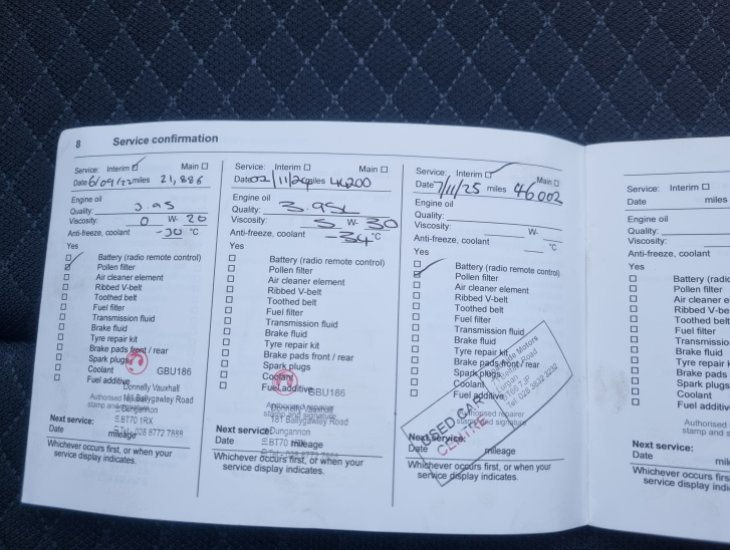 8 Service confirmation
Service: Interim Main
Date 6/09/22 miles 21,886
Engine oil
Quality: 3.9S
Viscosity: 0 W- 20
Anti-freeze, coolant -30 °C
Yes
Battery (radio remote control)
Pollen filter
Air cleaner element
Ribbed V-belt
Toothed belt
Fuel filter
Transmission fluid
Brake fluid
Tyre repair kit
Brake pads front / rear
Spark plugs
Coolant GBU186
Fuel additive
Donnelly Vauxhall
Authorised
stamp and
Ballygawley Road
Dungannon
BT70 1RX
Tel: 028 8772 7888
Next service:
Date mileage
Whichever occurs first, or when your
service display indicates.
Service: Interim Main
Date 02/11/24 miles
Engine oil
Quality:
Viscosity: 5 W- 30
Anti-freeze, coolant -34 °C
Yes
Battery (radio remote control)
Pollen filter
Air cleaner element
Ribbed V-belt
Toothed belt
Fuel filter
Transmission fluid
Brake fluid
Tyre repair kit
Brake pads front / rear
Spark plugs
Coolant
Fuel additive GBU186
Authorised repairer
stamp and signature
Donnelly Vauxhall
181 Ballygawley Road
Dungannon
BT70
Next service:
Date mileage
Whichever occurs first, or when your
service display indicates.
Service: Interim Main
Date 7/11/25 miles 46002
Engine oil
Quality:
Viscosity: W-
Anti-freeze, coolant °C
Yes
Battery (radio remote control)
Pollen filter
Air cleaner element
Ribbed V-belt
Toothed belt
Fuel filter
Transmission fluid
Brake fluid
Tyre repair kit
Brake pads front / rear
Spark plugs
Coolant
Fuel additive
Authorised repairer
stamp and signature
USED CAR
Motors
Road
Lurgan
Tel: 028
Next service:
Date mileage
Whichever occurs first, or when your
service display indicates.
Service: Interim
Date miles
Engine oil
Quality:
Viscosity:
Anti-freeze, coolant
Yes
Battery (radio
Pollen filter
Air cleaner e
Ribbed V-belt
Toothed belt
Fuel filter
Transmissio
Brake fluid
Tyre repair k
Brake pads
Spark plugs
Coolant
Fuel additiv
Authorised
stamp and s
Next service:
Date mil
Whichever occurs first
service display indi